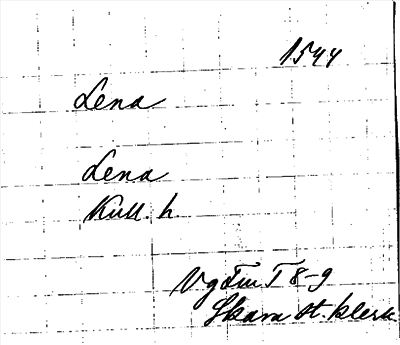 1544
Lena
Lena
Kull. h.
Vg Fm T 8-9
Skara st. klerk